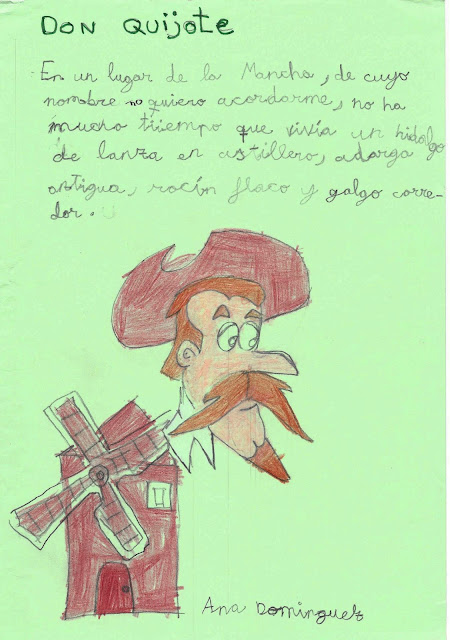 DON QUIJOTE
En un lugar de la Mancha, de cuyo
nombre no quiero acordarme, no ha
mucho tiiempo que vivía un hidalgo
de lanza en astillero, adarga
antigua, rocín flaco y galgo corre-
dor.
Ana Dominguez